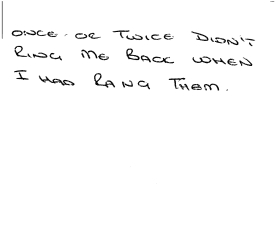 ONCE OR TWICE DIDN'T
RING ME BACK WHEN
I HAD RANG THEM.